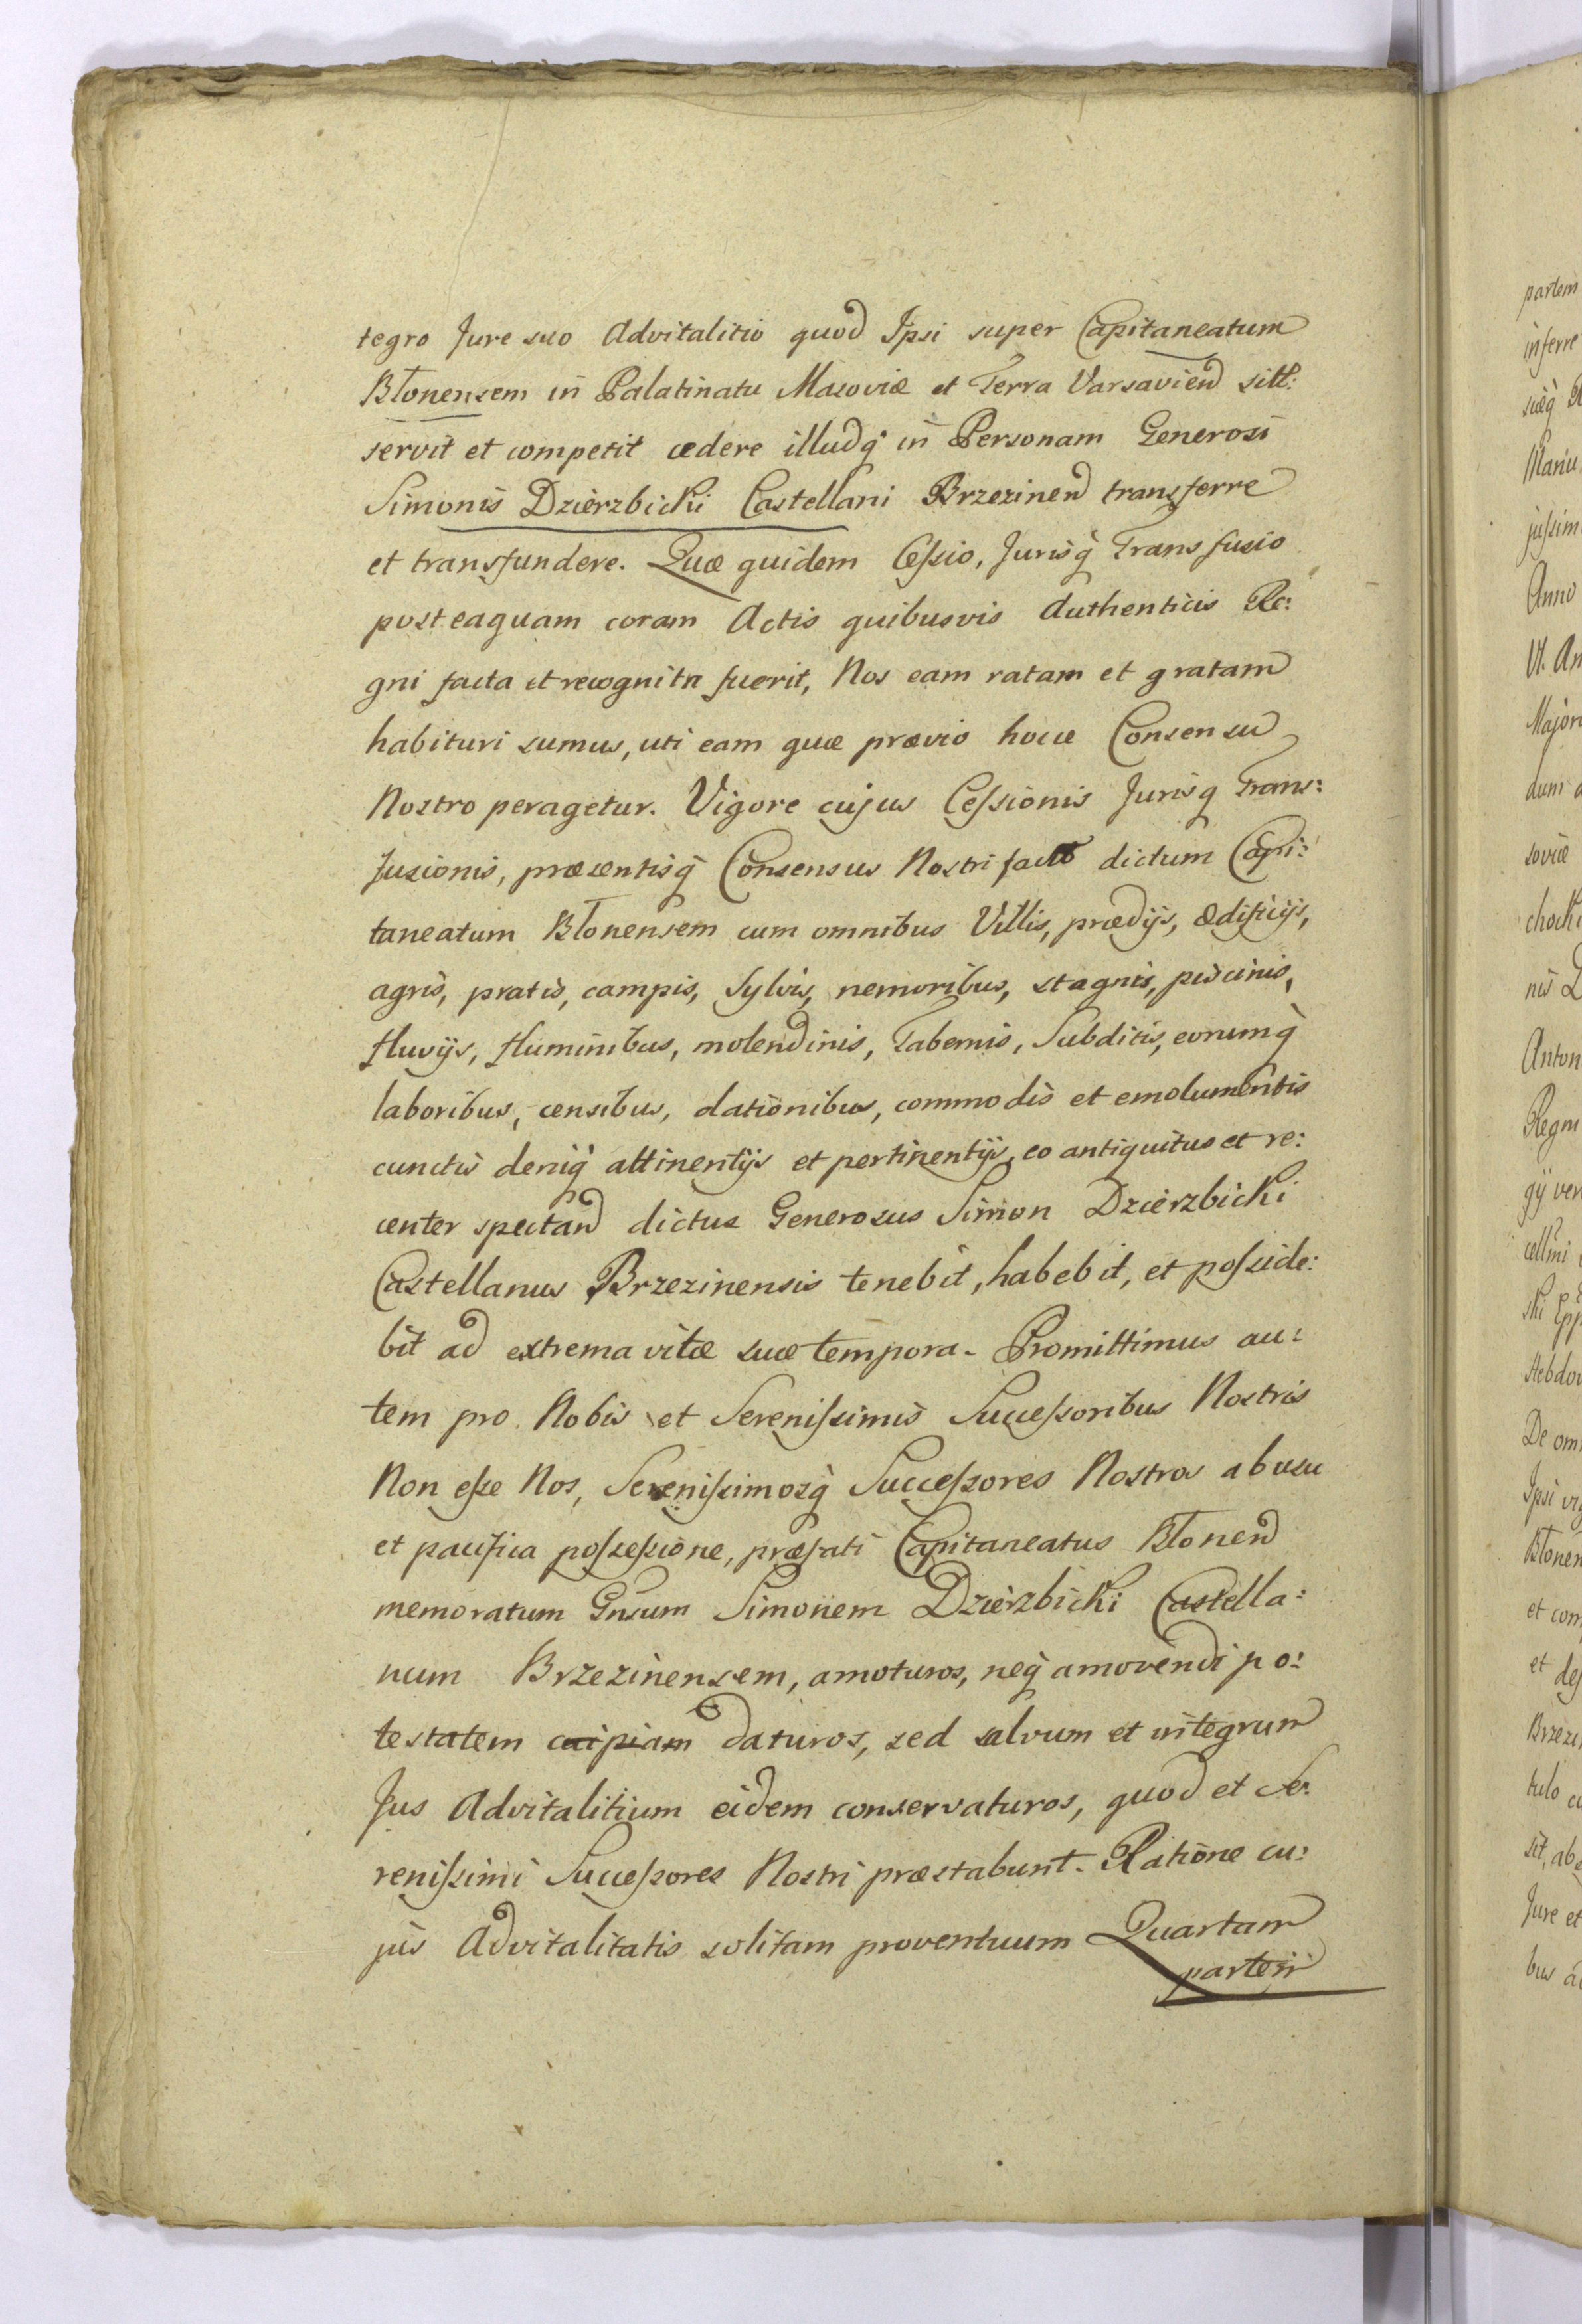 tegro Jure suo Advitalitio quod Ipsi super Capitaneatum
Błonensem in Palatinatu Masoviæ et Terra Varsavien sitt:
servit et competit cedere illudq̀ in Personam Generosi
Simonis Dzierzbicki Castellani Brzezinen transferre
et transfundere. Quæ quidem Ceſsio, Jurisq̀ Transfusio
posteaquam coram Actis quibusvis Authenticis Re:
gni facta et recognita fuerit, Nos eam ratam et gratam
habituri sumus, uti eam quæ prævio hocce Consensu
Nostro peragetur. Vigore cujus Ceſsionis Jurisq Trans:
fusionis, præsentisq̀ Consensus Nostri facto dictum Capi:
taneatum Błonensem cum omnibus Villis, prædijs, ædificijs,
agris, pratis, campis, Sylvis, nemoribus, stagnis, piscinis,
fluvijs, fluminibus, molendinis, Tabernis, Subditis, eorumq̀
laboribus, censibus, dationibus, commodis et emolumentis
cunctis deniq̀ attinentijs et pertinentijs, eo antiquitus et re:
center spectan dictus Generosus Simon Dzierzbicki
Castellanus Brzezinensis tenebit, habebit, et poſside:
bit ad extrema vitæ suæ tempora. Promittimus au:
tem pro Nobis et Sereniſsimis Succeſsoribus Nostris
Non eſse Nos, Sereniſsimosq̀ Succeſsores Nostros ab usu
et pacifica poſseſsione, præfati Capitaneatus Błonen
memoratum Gnsum Simonem Dzierzbicki Castella:
num Brzezinensem, amoturos, neq̀ amovendi po:
testatem cuipiam daturos, sed salvum et integrum
Jus Advitalitium eidem conservaturos, quod et Se:
reniſsimi Succeſsores Nostri præstabunt. Ratione cu:
jus Advitalitatis solitam proventuum Quartam
partem